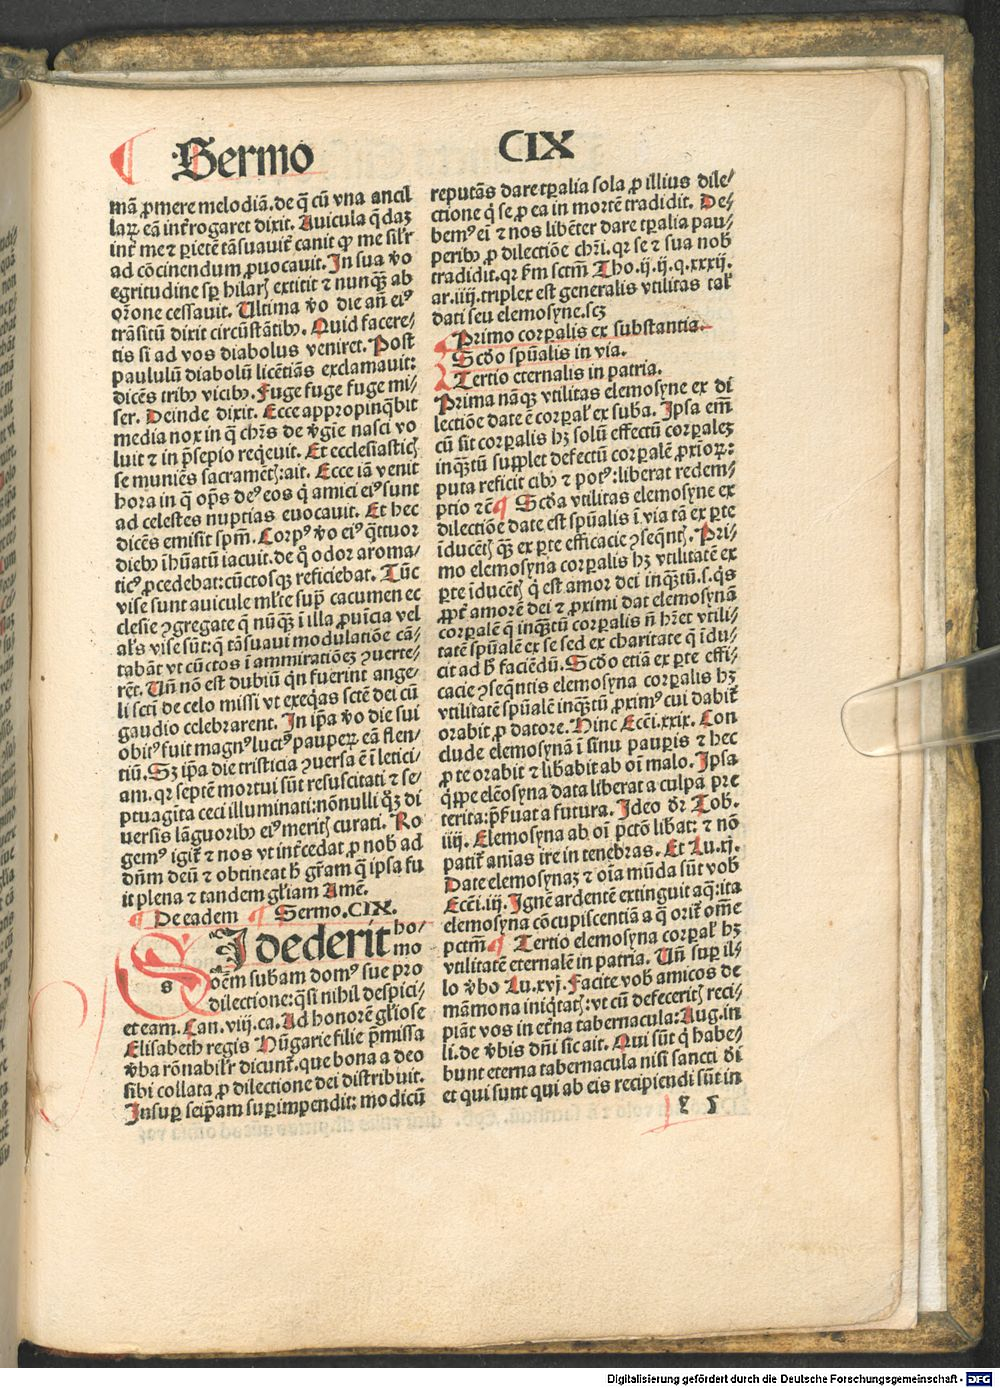 Sermo CIX
mā ꝓmere melodiā. de q̄ cū vna ancil
larꝝ eā int̄rogaret dixit. Auicula q̄dā
int̄ me ⁊ pietē tā suauit̄ canit ꝙ me sil'r
ad cōcinendum ꝓuocauit. In sua v̄o
egritudine sꝑ hilaris extitit ⁊ nunq̄ ab
or̄one cessauit. Ultima v̄o die an̄ eiꝰ
trāsitū dixit circūstātibꝰ. Quid facere⸗
tis si ad vos diabolus veniret. Post
paululū diabolū licētiās exclamauit:
dicēs tribꝰ vicibꝰ. Fuge fuge fuge mi⸗
ser. Deinde dixit. Ecce appropinq̄bit
media nox in q̄ chr̄s de v̄gīe nasci vo
luit ⁊ in p̄sepio reqͥeuit. Et ecclesiastic̄
se muniēs sacramēt̄: ait. Ecce iā venit
hora in q̄ op̄s deꝰ eos qͥ amici eiꝰ sunt
ad celestes nuptias euocauit. Et hec
dicēs emisit spm̄. Corpꝰ v̄o eiꝰ q̄ttuor
diebꝰ īhūatū iacuit. de qͦ odor aroma⸗
ticꝰ ꝓcedebat: cūctosqꝫ reficiebat. Tūc
vise sunt auicule ml'te supͣ cacumen ec
clesie ꝯgregate q̄ nūqͣꝫ ī illa ꝓuīcia vel
al's vise sūt: q̄ tā suaui modulatiōe cā⸗
tabāt vt cūctos ī ammirationē ꝯuerte⸗
rēt. Un̄ nō est dubiū qn̄ fuerint ange⸗
li sctī de celo missi vt exeqͥas sctē dei cū
gaudio celebrarent. In ip̄a v̄o die sui
obitꝰ fuit magnꝰ luctꝰ pauperꝝ eā flen⸗
tiū. Sꝫ ip̄a die tristicia ꝯuersa ē ī letici⸗
am. qꝛ septē mortui sūt resuscitati ⁊ se⸗
ptuagīta ceci illuminati: nōnulli qͦꝫ di
uersis lāguoribꝰ eiꝰ meritis curati. Ro
gemꝰ igit̄ ⁊ nos vt int̄cedat ꝓ nob̄ ad
dn̄m deū ⁊ obtineat b̄ gr̄am q̄ ipsa fu
it plena ⁊ tandem gl'iam Amē.
De eadem Sermo. CIX.
SI dederit ho⸗
mo
oēm subām domꝰ sue pro
dilectione: qͣsi nihil despici⸗
et eam. Can. viij. ca. Ad honorē gl'iose
Elisabeth regis Hūgarie filie p̄missa
v̄ba rōnabil'r dicunt̄. que bona a deo
sibi collata ꝓ dilectione dei distribuit.
Insuꝑ seip̄am suꝑimpendit: modicū
reputās dare tꝑalia sola ꝓ illius dile⸗
ctione qͥ se ꝓ ea in mortē tradidit. De⸗
bemꝰ eī ⁊ nos libēter dare tꝑalia pau⸗
peribꝰ ꝓ dilectiōe chr̄i. qꝛ se ⁊ sua nob̄
tradidit. qꝛ ẜm sctm̄ Tho. ij. ij. q. xxxij.
ar. iiij. triplex est generalis vtilitas tal'
dati seu elemosyne. scꝫ
Primo corꝑalis ex substantia.
Scd̄o spūalis in via.
Tertio eternalis in patria.
Prima nāqꝫ vtilitas elemosyne ex di
lectiōe date ē corꝑal' ex suba. Ipsa em̄
cū sit corꝑalis hꝫ solū effectū corꝑalē
inqͣꝫtū supplet defectū corꝑalē ꝓxīorꝝ:
puta reficit cibꝰ ⁊ potꝰ: liberat redem⸗
ptio ⁊cē Scd̄a vtilitas elemosyne ex
dilectiōe date est spūalis ī via tā ex ꝑte
īducētis qͣꝫ ex ꝑte efficacie ꝯseqn̄tis. Pri⸗
mo elemosyna corꝑalis hꝫ vtilitatē ex
ꝑte īducētis qͥ est amor dei inqͣꝫtū. s. qͥs
ꝓpt̄ amorē dei ⁊ ꝓximi dat elemosynā
corꝑalē q̄ inqͣꝫtū corꝑalis nō hr̄et vtili⸗
tatē spūalē ex se sed ex charitate q̄ īdu⸗
cit ad h̄ faciēdū. Scd̄o etiā ex ꝑte effi⸗
cacie ꝯseqn̄tis elemosyna corꝑalis hꝫ
vtilitatē spūalē inqͣꝫtū ꝓximꝰ cui dabit̄
orabit ꝓ datore. Hinc Ecci. xxix. Con
clude elemosynā ī sinu pauꝑis ⁊ hec
ꝓ te orabit ⁊ lib̄abit ab oī malo. Ipsa
qͥppe elēosyna data liberat a culpa pre
terita: p̄ẜuat a futura. Ideo dr̄ Tob.
iiij. Elemosyna ab oī pctō lib̄at: ⁊ nō
patit̄ anīas ire in tenebras. Et Lu. xj.
Date elemosynā ⁊ oīa mūda sūt vob̄
Ecci. iij. Ignē ardentē extinguit aqͣ: ita
elemosyna cōcupiscentiā a q̄ orit̄ om̄e
pctm̄ Tertio elemosyna corꝑal' hꝫ
vtilitatē eternalē in patria. Un̄ suꝑ il⸗
lo v̄bo Lu. xvj. Facite vob̄ amicos de
māmona iniqͥtatis: vt cū defeceritis reci⸗
piāt vos in et̄na tabernacula: Aug. in
li. de v̄bis dn̄i sic ait. Qui sūt qͥ habe⸗
bunt eterna tabernacula nisi sancti dī
et qui sunt qui ab eis recipiendi sūt in
Digitalisierung gefördert durch die Deutsche Forschungsgemeinschaft - DFG